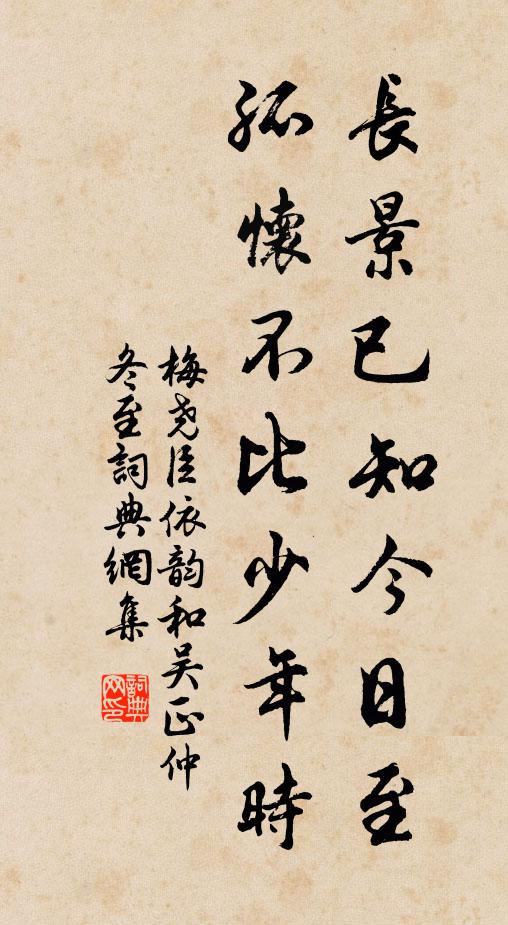 長景已知今日至
孤懷不比少年時
梅尧臣依韵和吴正仲
冬至詞典網集
詞典
网印